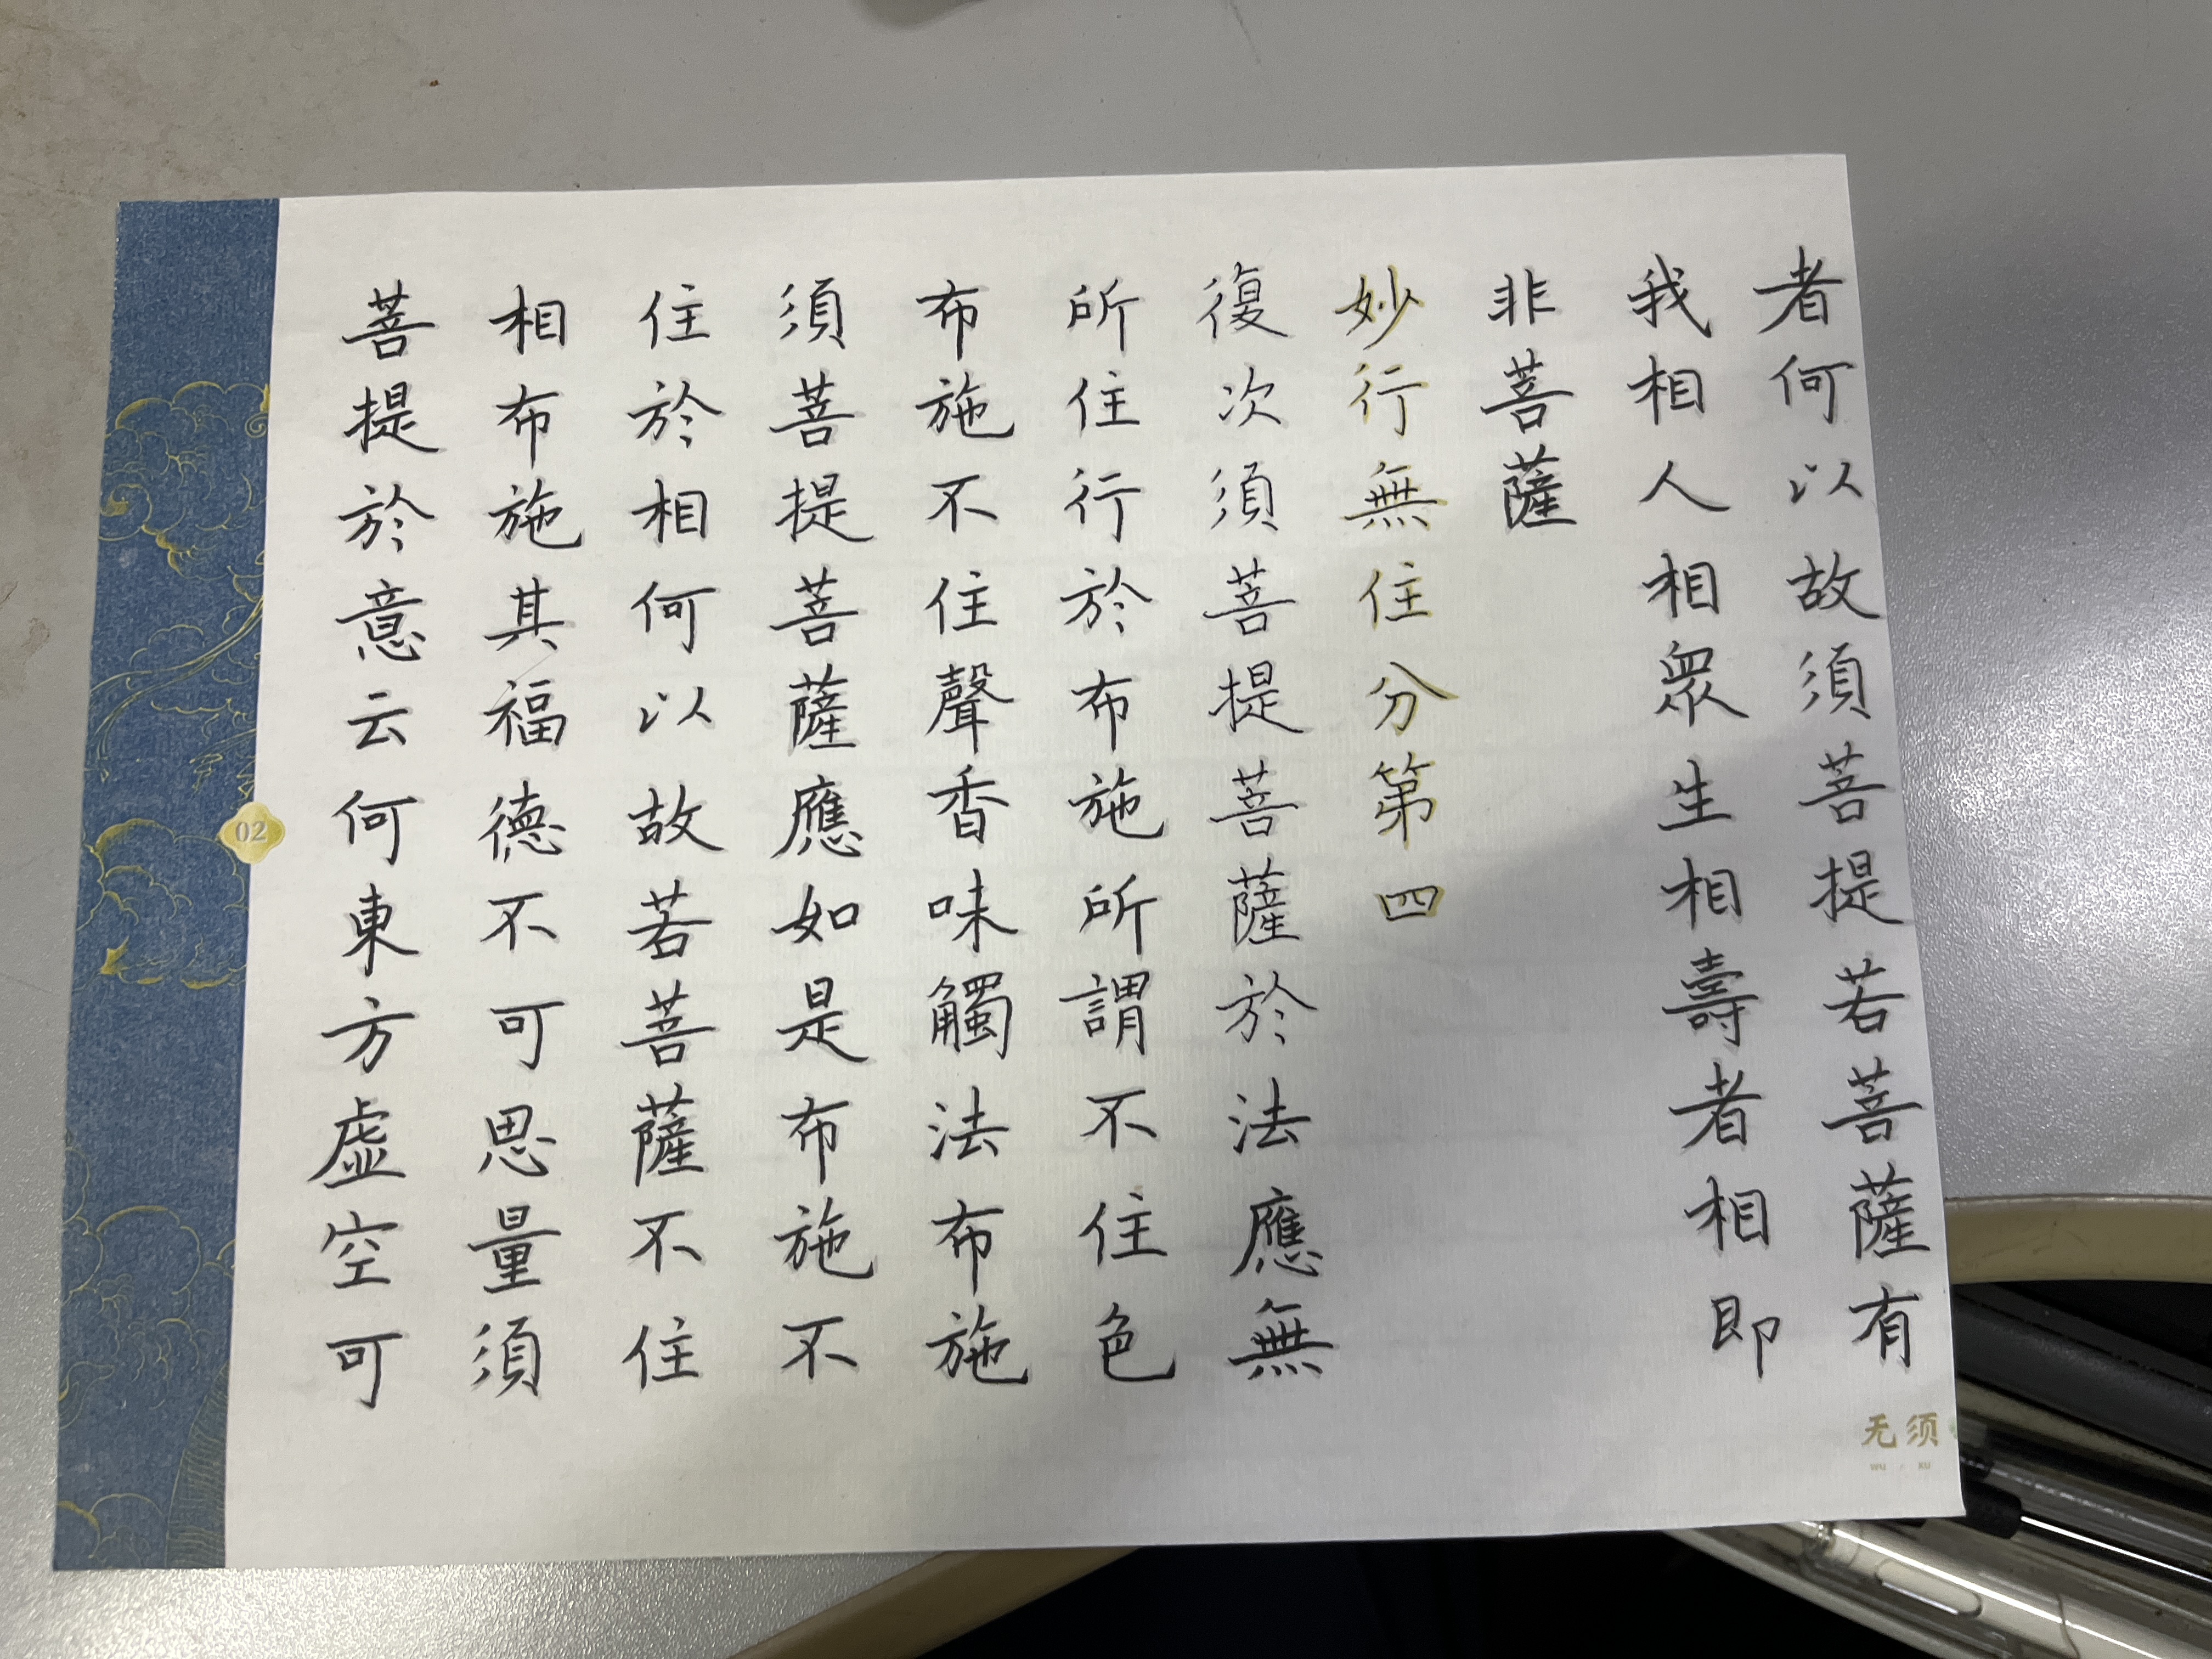 者何以故須菩提若菩薩有
我相人相眾生相壽者相即
非菩薩
妙行無住分第四
復次須菩提菩薩於法應無
所住行於布施所謂不住色
布施不住聲香味觸法布施
須菩提菩薩應如是布施不
住於相何以故若菩薩不住
相布施其福德不可思量須
菩提於意云何東方虛空可
02
无须
WU XU